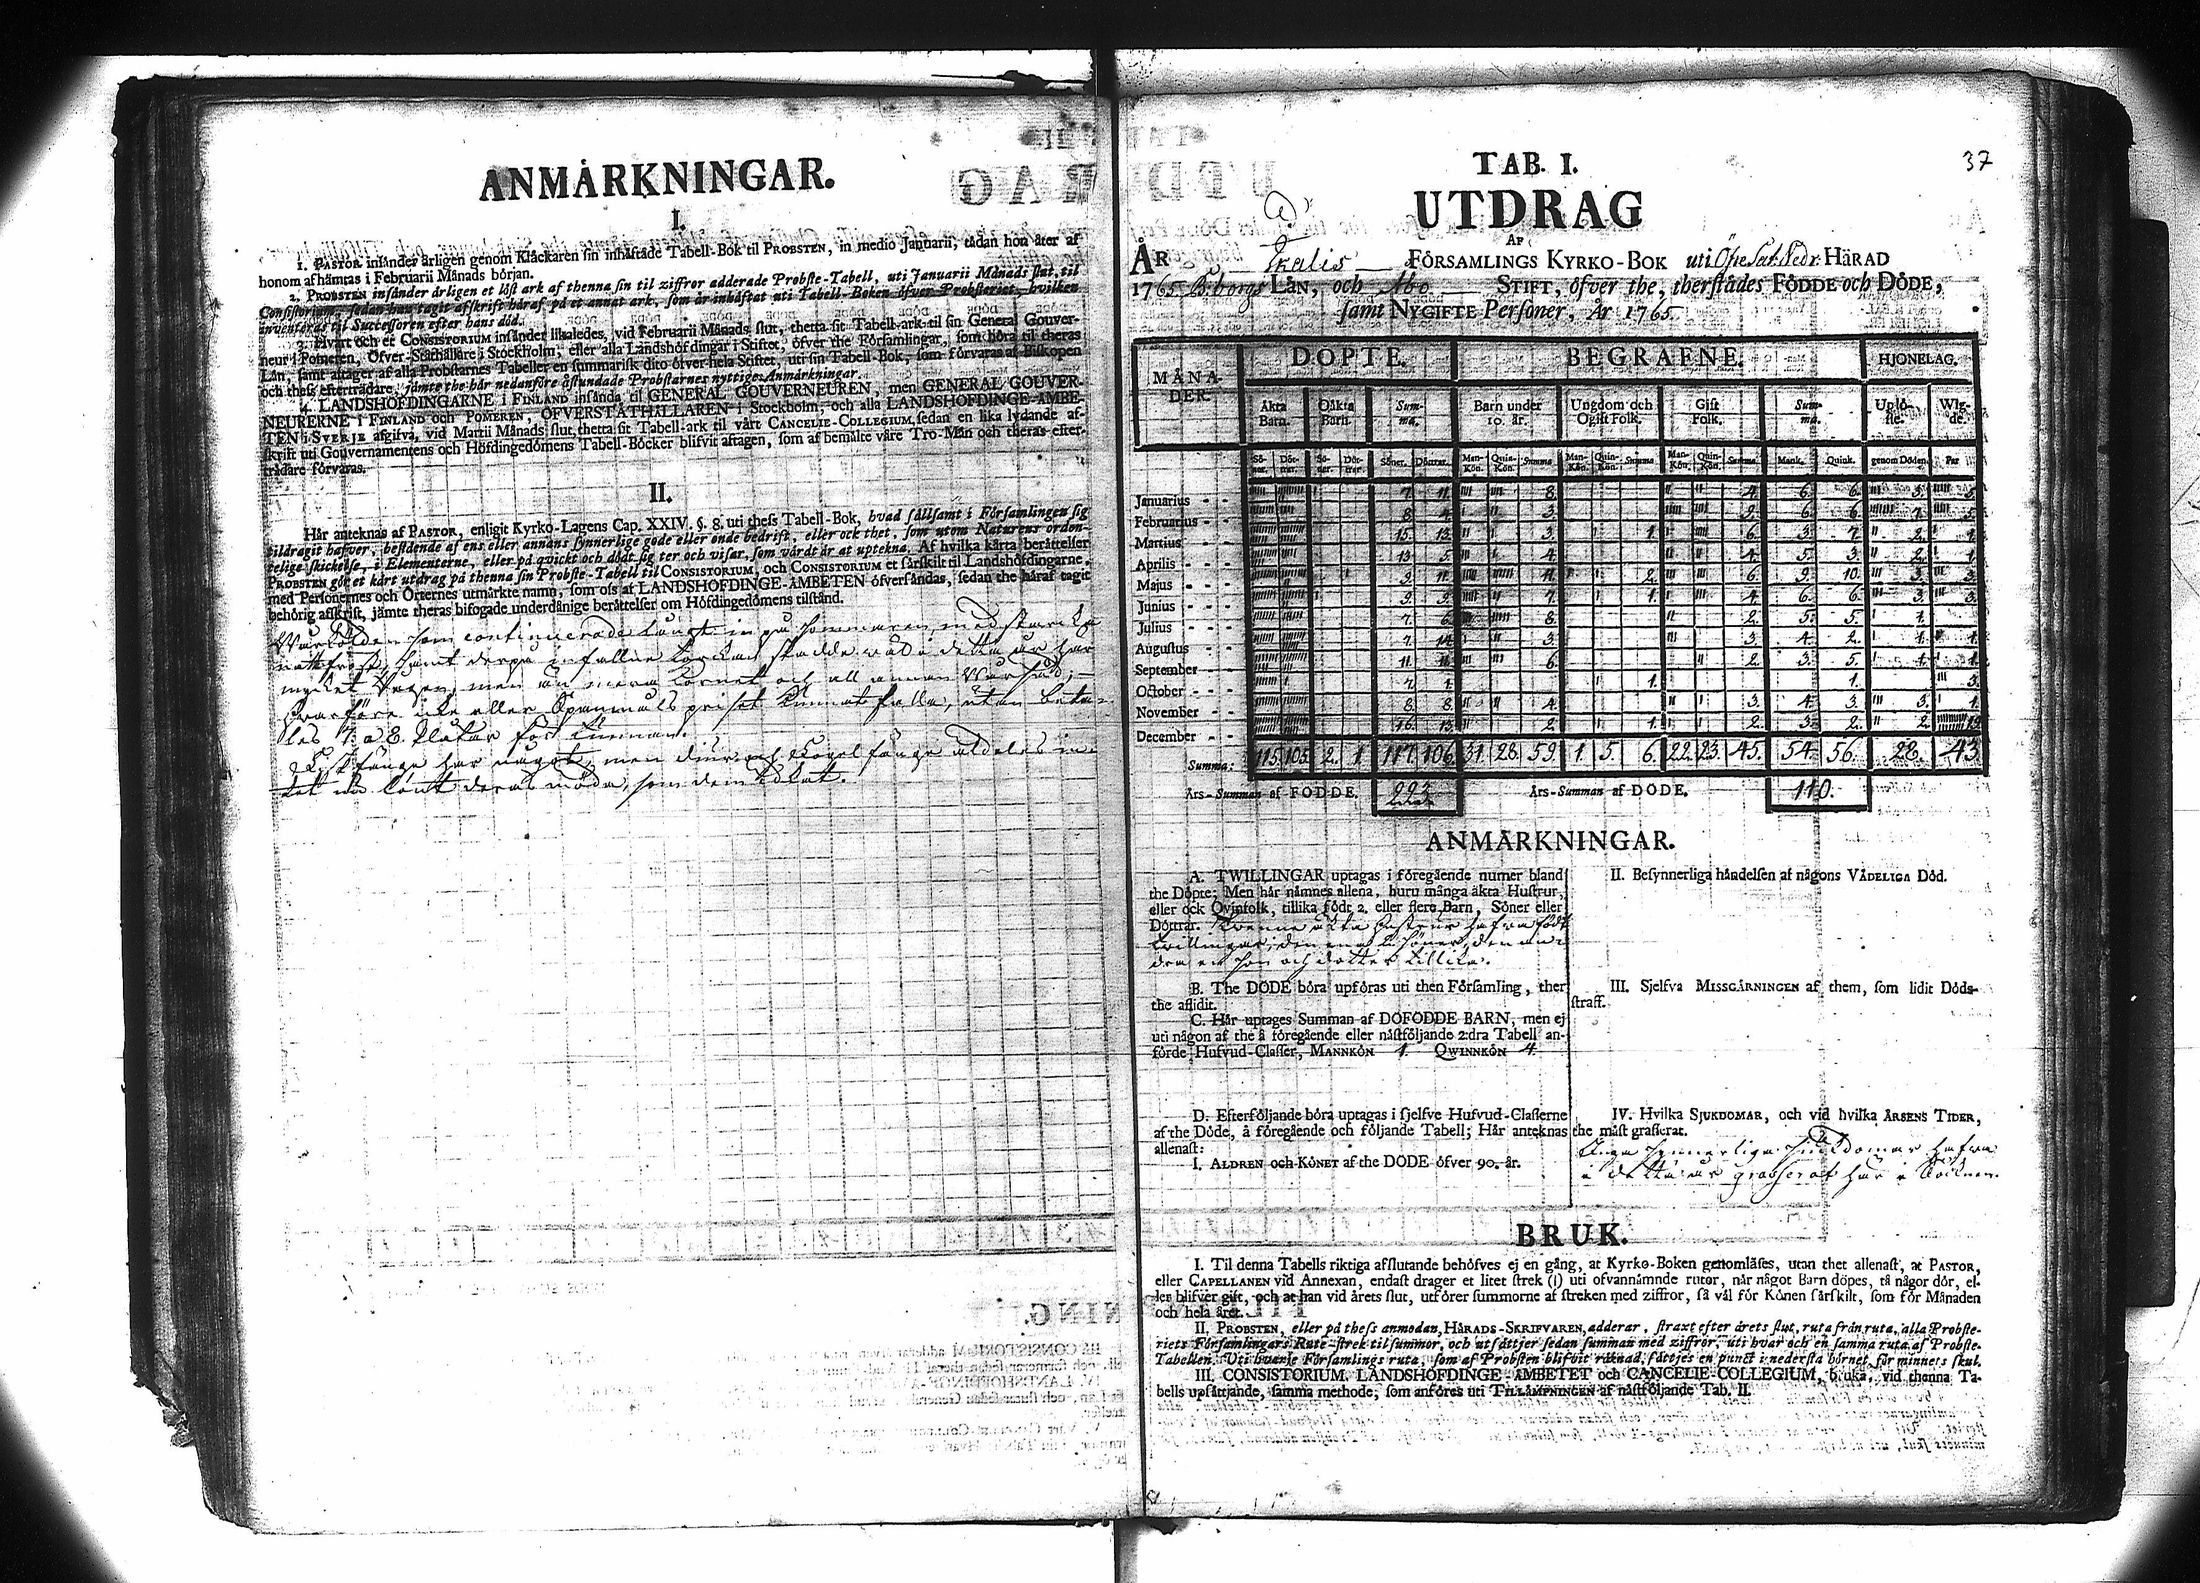 ANMÄRKNINGAR.
I.
1. PASTOR insänder årligen genom Klåckaren sin inhäftade Tabell-Bok til PROBSTEN, in medio Januarii, tädan hon åter af
honom afhämtas i Februarii Månads början.
2. PROBSTEN insänder årligen et löst ark af thenna sin til ziffror adderade Probste-Tabell, uti Januarii Månads slut, til
Consistorium, sedan han tagit afskrift häraf på et annat ark, som är inhäftat uti Tabell-Boken öfver Probsteriet, hvilken
inventeras til Successoren efter hans död.
3. Hvart och et CONSISTORIUM insänder likaledes, vid Februarii Månads slut, thetta sit Tabell-ark til sin General Gouver-
neur i Pomeren, Öfver-Ståthållare i Stockholm, eller alla Landshöfdingar i Stiftet, öfver the Församlingar, som höra til theras
Län, samt aftager af alla Probstarnes Tabeller en summarisk dito öfver hela Stiftet, uti sin Tabell-Bok, som förvaras af Biskopen
och thess efterträdare, jämte the här nedanföre åstundade Probstarnes nyttiges Anmärkningar.
4. LANDSHÖFDINGARNE i FINLAND insända til GENERAL GOUVERNEUREN, men GENERAL GOUVER-
NEURERNE i FINLAND och POMEREN, ÖFVERSTÅTHÅLLAREN i Stockholm, och alla LANDSHÖFDINGE-ÄMBE-
TEN i SVERJE afgifva, vid Martii Månads slut, thetta sit Tabell-ark til vårt CANCELIE-COLLEGIUM, sedan en lika lydande af-
skrift uti Gouvernamentens och Höfdingedömens Tabell-Böcker blifvit aftagen, som af bemälte våre Tro-Män och theras efter-
trädare förvaras.
II.
Här anteknas af PASTOR, enligit Kyrko-Lagens Cap. XXIV. §. 8. uti thess Tabell-Bok, hvad sällsamt i Församlingen sig
tildragit hafver, bestående af ens eller annans synnerlige gode eller onde bedrift, eller ock thet, som utom Naturens orden-
telige skickelse, i Elementerne, eller på quickt och dödt, sig ter och visar, som värdt är at uptekna. Af hvilka kårta berättelser
PROBSTEN gör et kårt utdrag på thenna sin Probste-Tabell til CONSISTORIUM, och CONSISTORIUM et särskilt til Landshöfdingarne,
med Personernes och Orternes utmärkte namn, som oss af LANDSHÖFDINGE-ÄMBETEN öfversändas, sedan the häraf tagit
behörig afskrift, jämte theras bifogade underdånige berättelser om Höfdingedömens tilstånd.
Wårkölden som continuerade långt in på sommaren med starcka
nattfrost, samt derpå infallne torckan skadde wäl i detta år här
mycket Rågen, men än mera Kornet och all annan Wårsäd;
hwarföre icke eller Spanmåls priset kunnat falla, utan beta-
les 7. a 8. Platar för Tunnan.
Fiskfänge har något, men diur och Fogel fänge aldeles in-
tet nu lönt deras möda, som dem idkat.
37
TAB. I.
UTDRAG
AF
ÅR Ikalis FÖRSAMLINGS KYRKO-BOK uti Öfre Sat. Nedr. HÄRAD
1765 B:borgs LÄN, och Åbo STIFT, öfver the, therstädes FÖDDE och DÖDE,
samt NYGIFTE Personer, År 1765
MÅNADER. DÖPTE. BEGRAFNE. HJONELAG.
Äkta Barn. Oäkta Barn. Summa. Barn under 10. år. Ungdom och Ogift Folk. Gift Folk. Summa. Uplöste. Wigde.
Söner. Döttrar. Söner. Döttrar. Söner. Döttrar. Man-Kön. Quin-Kön. Summa Man-Kön. Quin-Kön. Summa Man-Kön. Quin-Kön. Summa. Mank. Quink. genom Döden Par
Januarius 7. 11. 8. 4. 6. 6. 3. 5
Februarius 8 4. 3. 9. 6. 6. 7. 5
Martius 15. 13. 3. 1. 6. 3. 7. 2. 1.
Aprilis 13. 5. 4. 4. 5. 3. 2. 1.
Majus 9. 11. 11. 2. 6. 9. 10. 3. 3.
Junius 9. 9. 7. 1. 4. 6. 6. 3. 3.
Julius 7. 6. 8. 2. 5. 5. 1.
Augustus 7. 14. 3. 3. 4. 2. 1. 1.
September 11. 11. 6. 2. 3. 5. 1. 1.
October 7. 1. 1. 1. 5.
November 8. 8. 4. 3. 4. 3. 3. 1.
December 16. 13. 2. 1. 2. 3. 2. 2. 19.
Summa: 115. 105. 2. 1 117. 106. 31. 28. 59. 1. 5. 6. 22. 23. 45. 54. 56. 28. 43.
Års-Summan af FÖDDE. 223 Års-Summan af DÖDE. 110.
ANMÄRKNINGAR.
A. TWILLINGAR uptagas i föregående numer bland
the Döpte; Men här nämnes allena, huru många äkta Hustrur,
eller ock Qvinfolk, tillika födt 2. eller flere Barn, Söner eller
Döttrar. Twenne äkta hustrur hafwa födt
twillingar; den ena 2. söner, den an-
dra en son och dotter tillika.
B. The DÖDE böra upföras uti then Församling, ther
the aflidit.
C. Här uptages Summan af DÖFÖDDE BARN, men ej
uti någon af the å föregående eller nästföljande 2:dra Tabell an-
förde Hufvud-Classer, MANNKÖN 1. QWINNKÖN 4.
D. Efterföljande böra uptagas i sjelfve Hufvud-Classerne
af the Döde, å föregående och följande Tabell; Här anteknas
allenast:
I. ÅLDREN och KÖNET af the DÖDE öfver 90. år.
II. Besynnerliga händelsen af någons VÅDELIGA Död.
III. Sjelfva MISSGÄRNINGEN af them, som lidit Döds-
straff.
IV. Hvilka SJUKDOMAR, och vid hvilka ÅRSENS TIDER,
the mäst grasserat.
Inga synnerliga siukdomar hafwa
i detta år grasserat här i Socknen.
BRUK.
I. Til denna Tabells riktiga afslutande behöfves ej en gång, at Kyrko-Boken genomläses, utan thet allenast, at PASTOR,
eller CAPELLANEN vid Annexan, endast drager et litet strek (|) uti ofvannämnde rutor, när något Barn döpes, tå någor dör, el-
ler blifver gift, och at han vid årets slut, utförer summorne af streken med ziffror, så väl för Könen särskilt, som för Månaden
och hela året.
II. PROBSTEN, eller på thess anmodan, HÄRADS-SKRIFVAREN, adderar, straxt efter årets slut, ruta från ruta, alla Probste-
riets Församlingars Rute-strek til summor, och utsättjer sedan summan med ziffror, uti hvar och en samma ruta af Probste-
Tabellen. Uti hvarje Församlings ruta, som af Probsten blifvit räknad, sättjes en punct i nedersta hörnet, för minnets skul.
III. CONSISTORIUM, LANDSHÖFDINGE-ÄMBETET och CANCELIE-COLLEGIUM, bruka, vid thenna Ta-
bells upsättjande, samma methode, som anföres uti TILLÄMPNINGEN af nästföljande Tab. II.